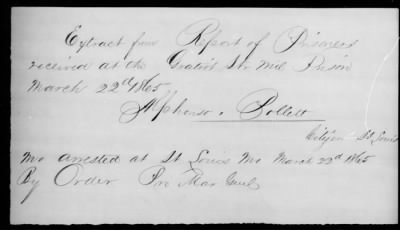 Extract from Report of Prisoners
received at the Gratiot Str Mil Prison
March 22nd 1865
Alphonso Pollett
Citizen St Louis
Mo arrested at St Louis Mo March 22d 1865
By Order Pro Mar Genl